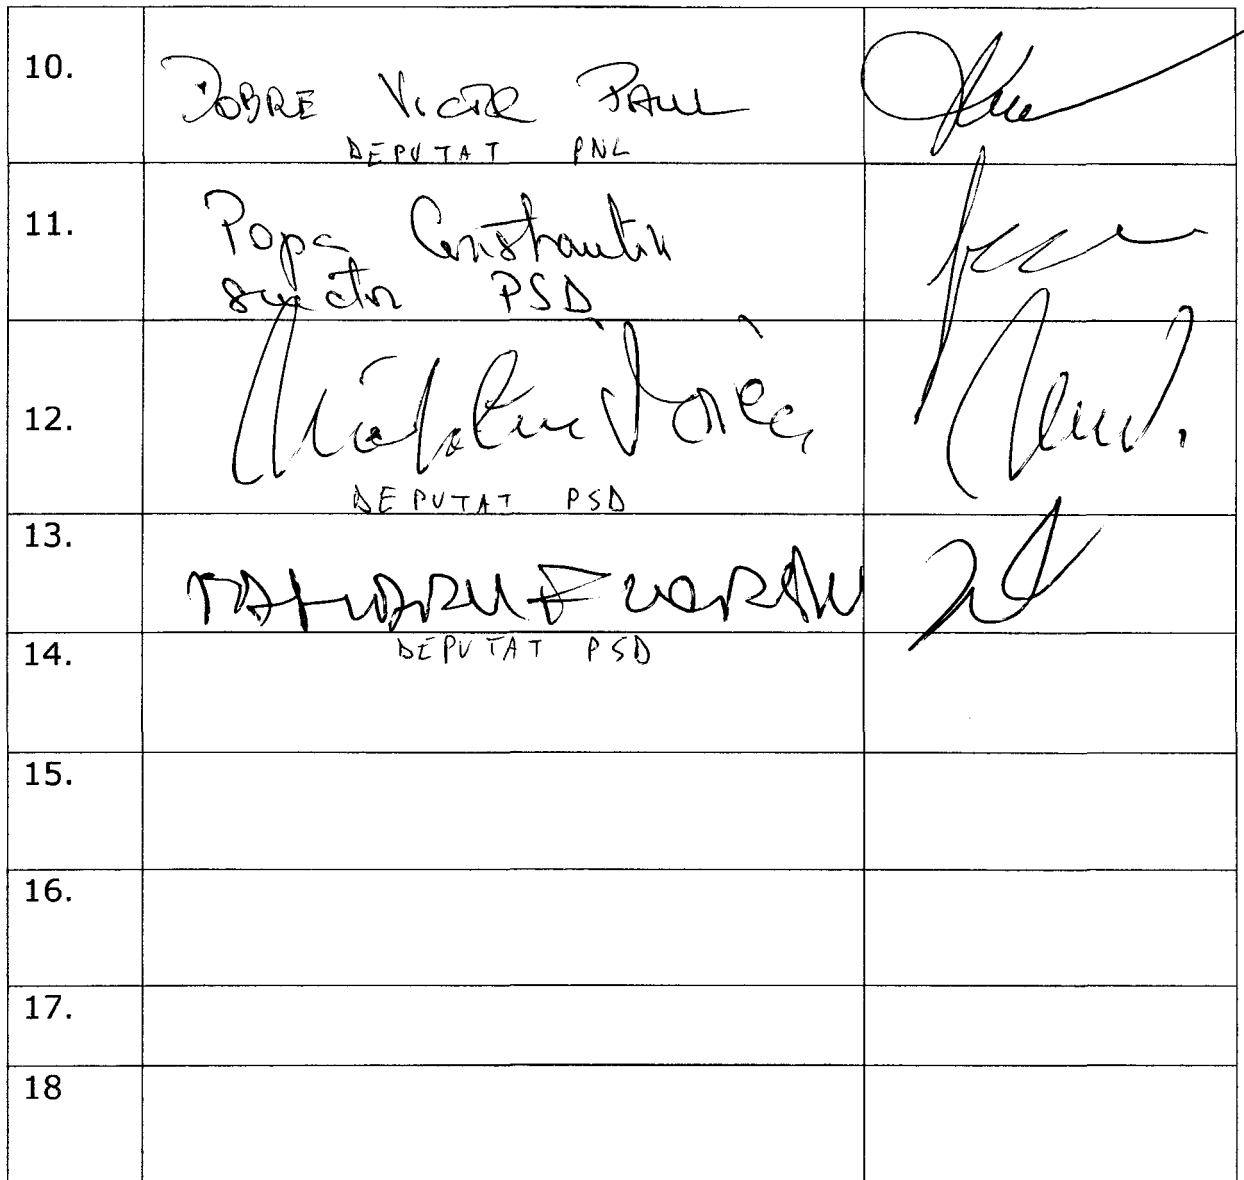 10.
DOBRE VICTOR PAUL
DEPUTAT PNL
11.
Popa Constantin
senator PSD
12.
DEPUTAT PSD
13.
DEPUTAT PSD
14.
15.
16.
17.
18